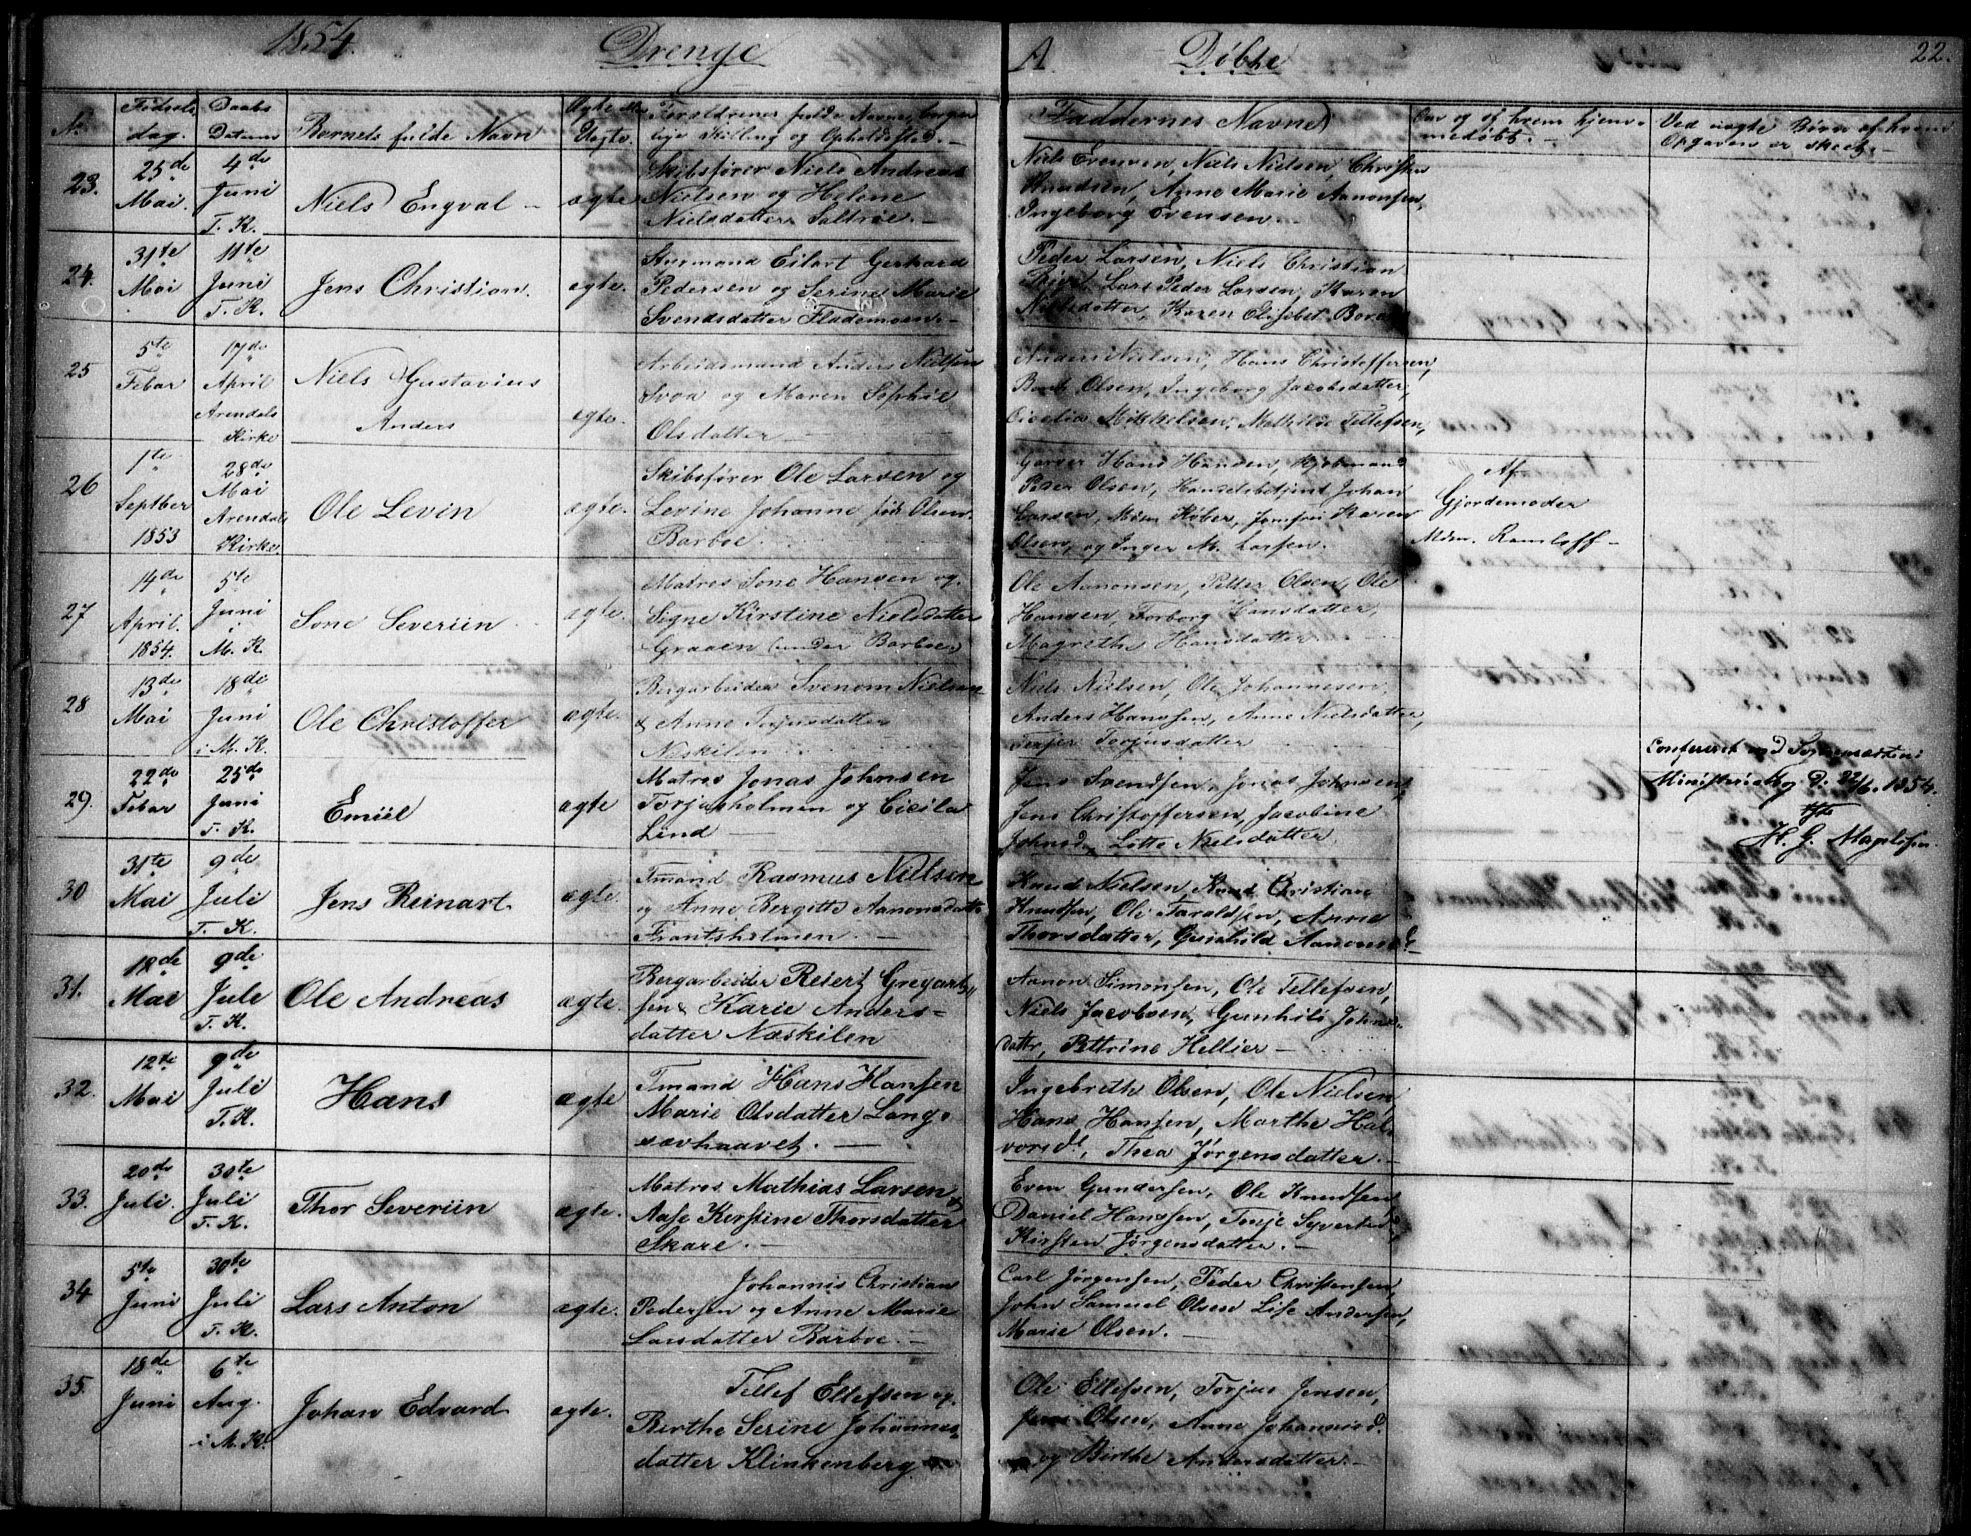 1854.
Drenge
A
Döbte
22.
N.
Fødsels dag.
Daabs Datum
Barnets fulde Navn
Ægte eller Uægte.
Forældrenes fulde Navne, borgerlige Stilling og Opholdsted. -
Faddernes Navne
Om og af hvem hjemmedøbt. -
Ved uægte Børn af hvem Opgaven er skeet. -
23.
25de Mai.
4de Juni T. K.
Niels Engval -
ægte
Skibsfører Niels Andreas
Nielsen og Helene
Nielsdatter Saltrøe. -
Niels Evensen, Niels Nielsen, Christen
Knudsen, Anne Marie Aanonsen,
Ingeborg Evensen -
24.
31te Mai
11te Juni T. K.
Jens Christian.
ægte.
Styrmand Eilart Gerhard
Pedersen og Serine Marie
Svendsdatter Flademoen. -
Peder Larsen, Niels Christian
Lars Peder Larsen, Karen
Nielsdatter, Karen Elisibet
25
5te Febar
17de April Arendals Kirke
Niels Gustavius
Anders
ægte.
Arbeidsmand Anders Nielsen
og Maren Sophie
Olsdatter -
Anders Nielsen, Hans Christoffersen,
Olsen, Ingeborg Jacobsdatter,
Mikkelsen, Mathilde Tellefsen,
26
1te Septber 1853
28de Mai Arendals Kirke
Ole Levin
ægte.
Skibsfører Ole Larsen og
Levine Johanne fød Olsen.
Barboe.
Garver Hans Hansen, Kjøbmand
Peder Olsen, Handelsbetjent Johan
Larsen, Mdm Køber, Jomfru Karen
Olsen, og Inger M. Larsen.
Af
Gjordemoder
Mdm. Ramloff -
27
14de April. 1854.
5te Juni i M. K.
Sone Severiin
ægte.
Matros Sone Hansen og
Signe Kirstine Nielsdatter
Graaen (under Barboe)
Ole Aanonsen, Petter Olsen, Ole
Hansen, Torborg Hansdatter,
Magrethe Hansdatter
28
13de Mai
18de Juni i M. K.
Ole Christoffer
ægte.
Bergarbeider Svenom Nielsen
& Anne Terjusdatter
Neskilen
Niels Nielsen, Ole Johannesen,
Anders Hanssen, Anne Nielsdatter,
Terjusdatter
29.
22de Febar
25de Juni T. K.
Emiil
ægte
Matros Jonas Johnsen
Torjusholmen og Cicilia
Lind -
Jens Svendsen, Jonas Johnsen,
Jens Christoffersen, Jacobine
Johnsd, Lotte Nielsdatter,
Confereret med Sognepræstens
Ministerialbog d: 22/6. 1854.
H. G. Magelssen.
30
31te Mai
9de Juli T. K.
Jens Reinart.
ægte.
Tmand Rasmus Nielsen
og Anne Bergitte Aanonsdatter
Frantsholmen. -
Knud Nielsen, Knud Christian
Knudsen, Ole Taraldsen, Anne
Thorsdatter, Gunhild Aanonsd.
31.
18de Mai
9de Jule T. K.
Ole Andreas
ægte.
Bergarbeider Reiert Gregert-
sen & Karie Anders-
datter Næskilen
Aanon Simonsen, Ole Tellefsen,
Niels Jacobsen, Gunhild Johns-
datter, Petrine Hellier -
32.
12te Mai
9de Juli T. K.
Hans
ægte
Tmand Hans Hansen
Marie Olsdatter Lang-
sævhaavet. -
Ingebreth Olsen, Ole Nielsen,
Hans Hansen, Marthe Hal-
vorsd., Thea Jørgensdatter. -
33.
20de Juli.
30te Juli T. K.
Thor Severiin
ægte.
Matros Mathias Larsen &
Aase Kirstine Thorsdatter
Skare. -
Even Gundersen, Ole Knudsen,
Daniel Hanssen, Terje Syvertsd.,
Kirsten Jørgensdatter. -
34
5te Juni
30te Juli T. K.
Lars Anton
ægte.
Johannis Christian
Pedersen og Anne Marie
Larsdatter Barboe. -
Carl Jörgensen, Peder Christensen,
John Samuel Olsen Lise Andersen,
Marie Olsen. -
35.
18de Juni
6te Aug. i M. K.
Johan Edvard
ægte.
Tellef Ellefsen og
Birthe Serine Johannes-
datter Klinkenberg
Ole Ellefsen, Torjus Jensen,
Jens Olsen, Anne Johannesd.
og Birthe Andersdatter. -